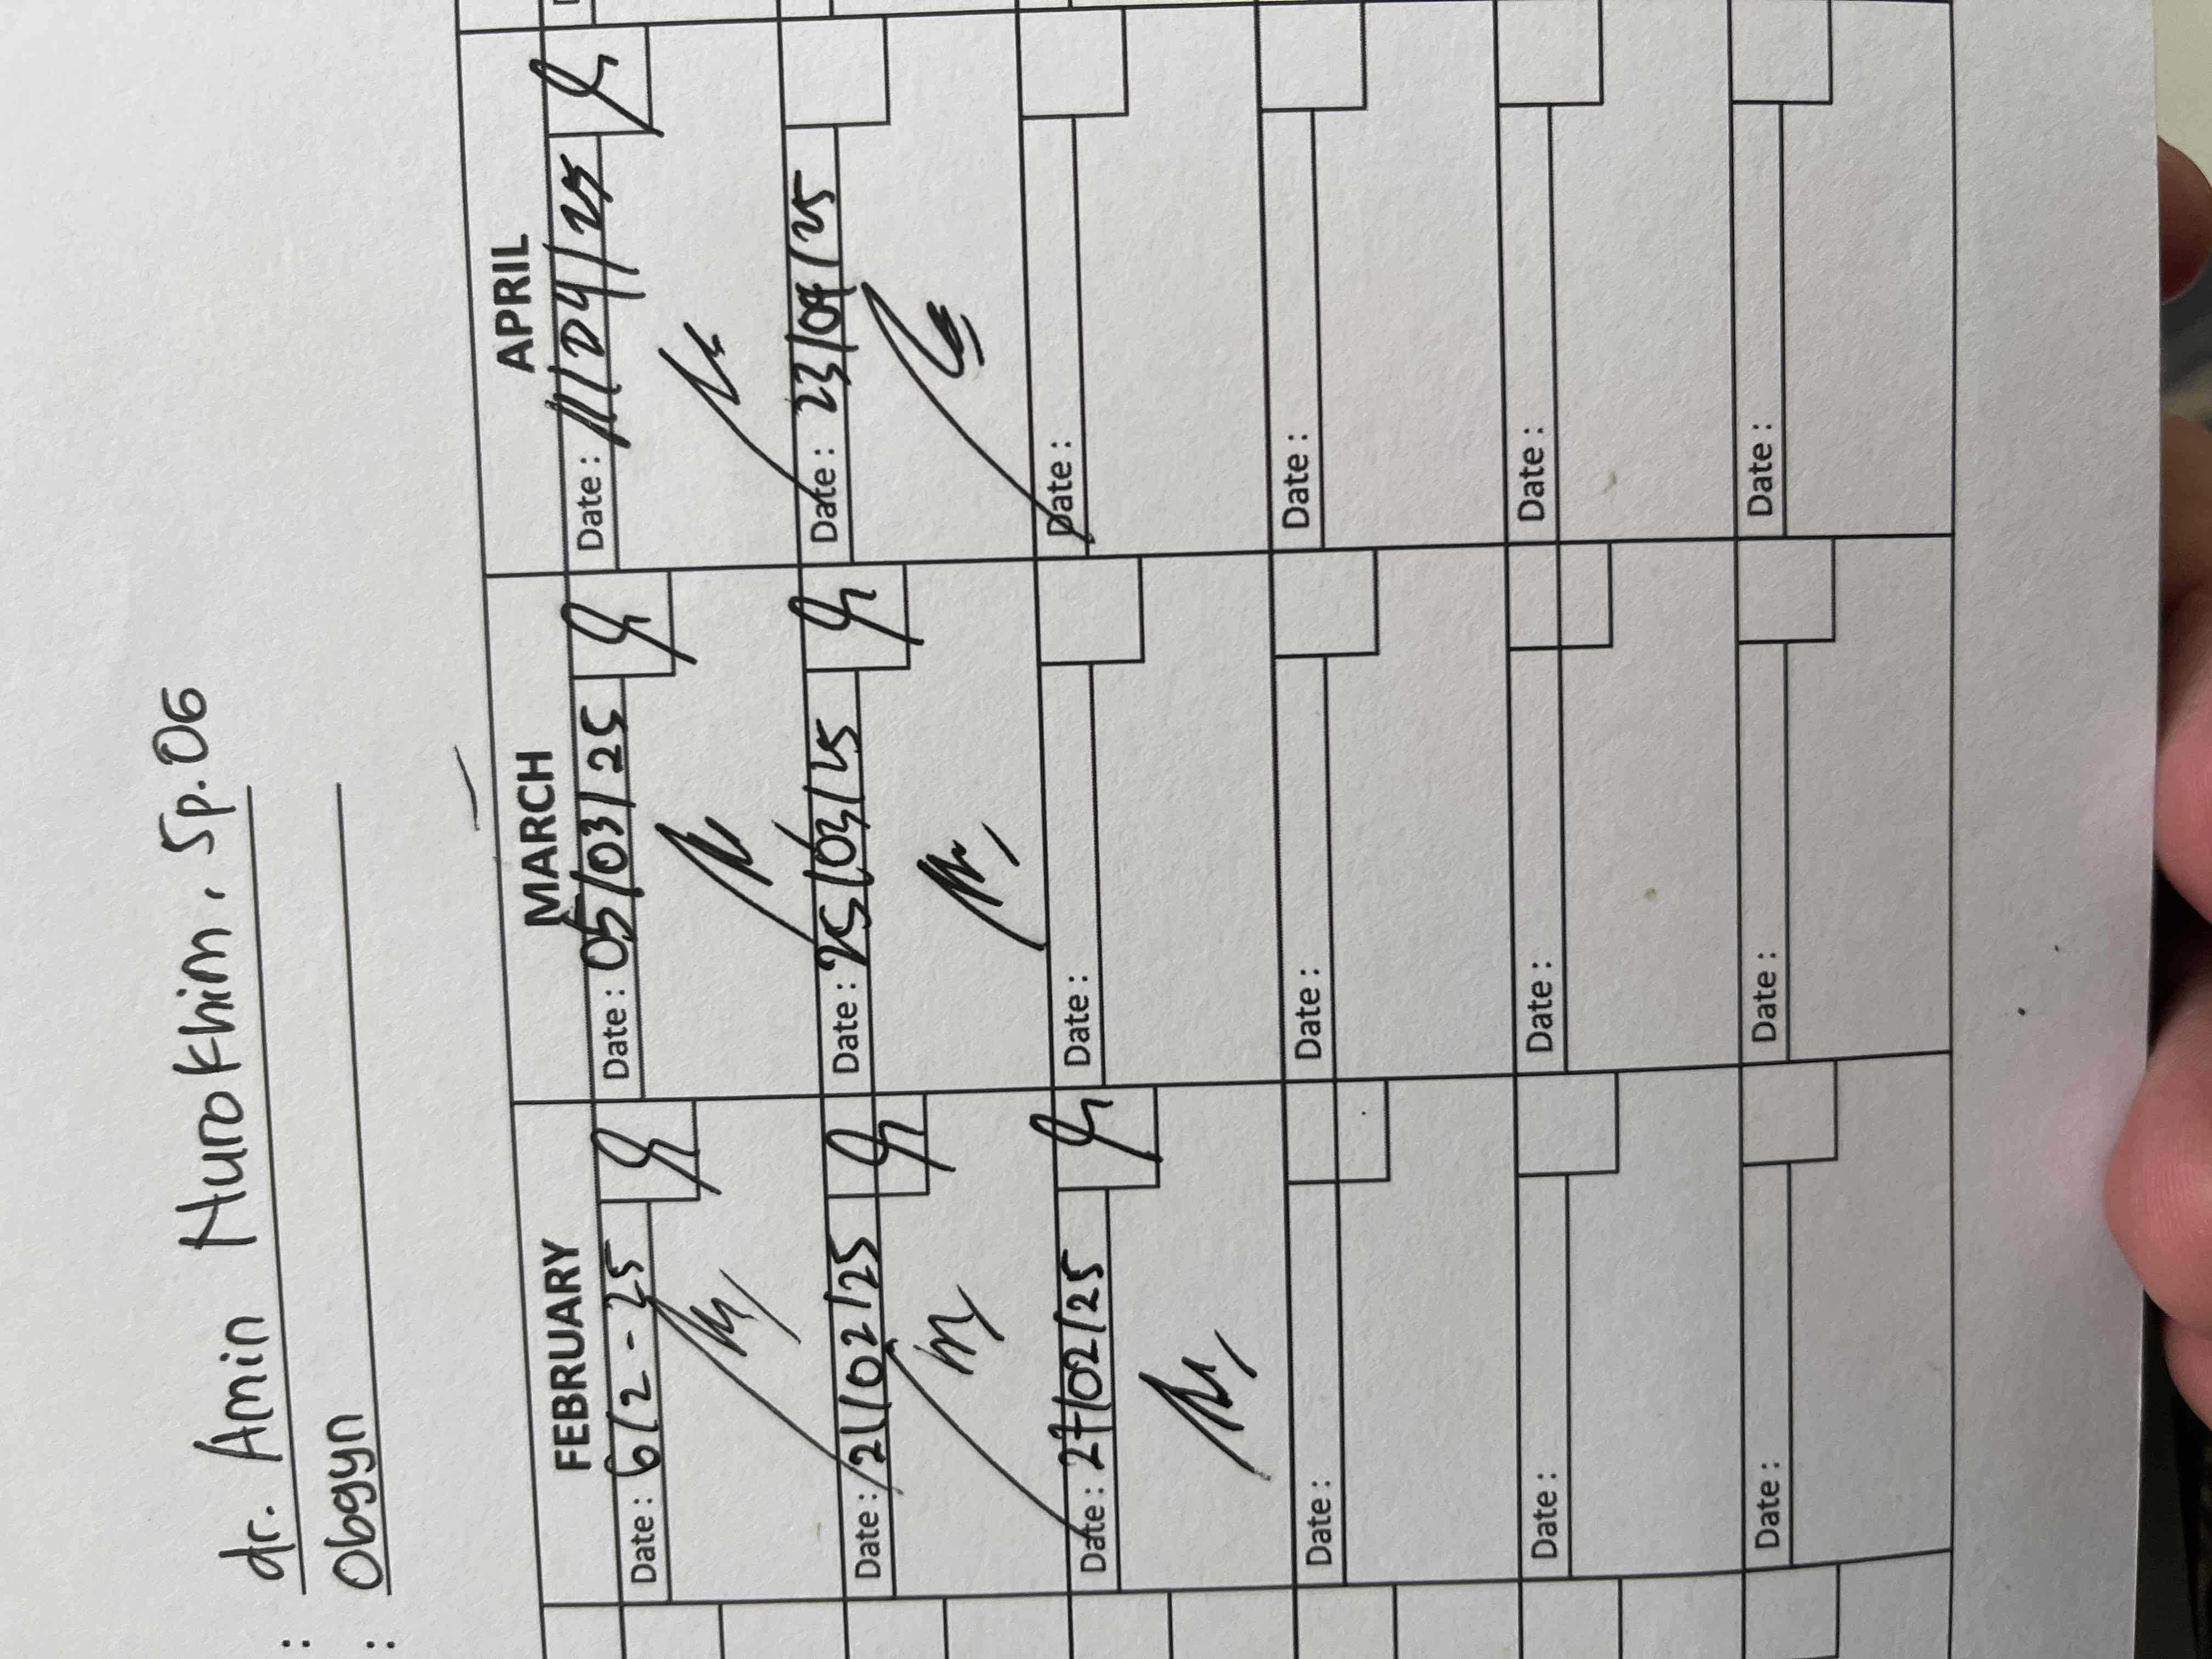 : dr. Amin Nurokhim, Sp.OG
: Obgyn
FEBRUARY MARCH APRIL
Date : 6/2-25 Date : 05/03/25 Date : 11/04/25
Date : 21/02/25 Date : 25/03/25 Date : 23/04/25
Date : 27/02/25 Date : Date :
Date : Date : Date :
Date : Date : Date :
Date : Date : Date :